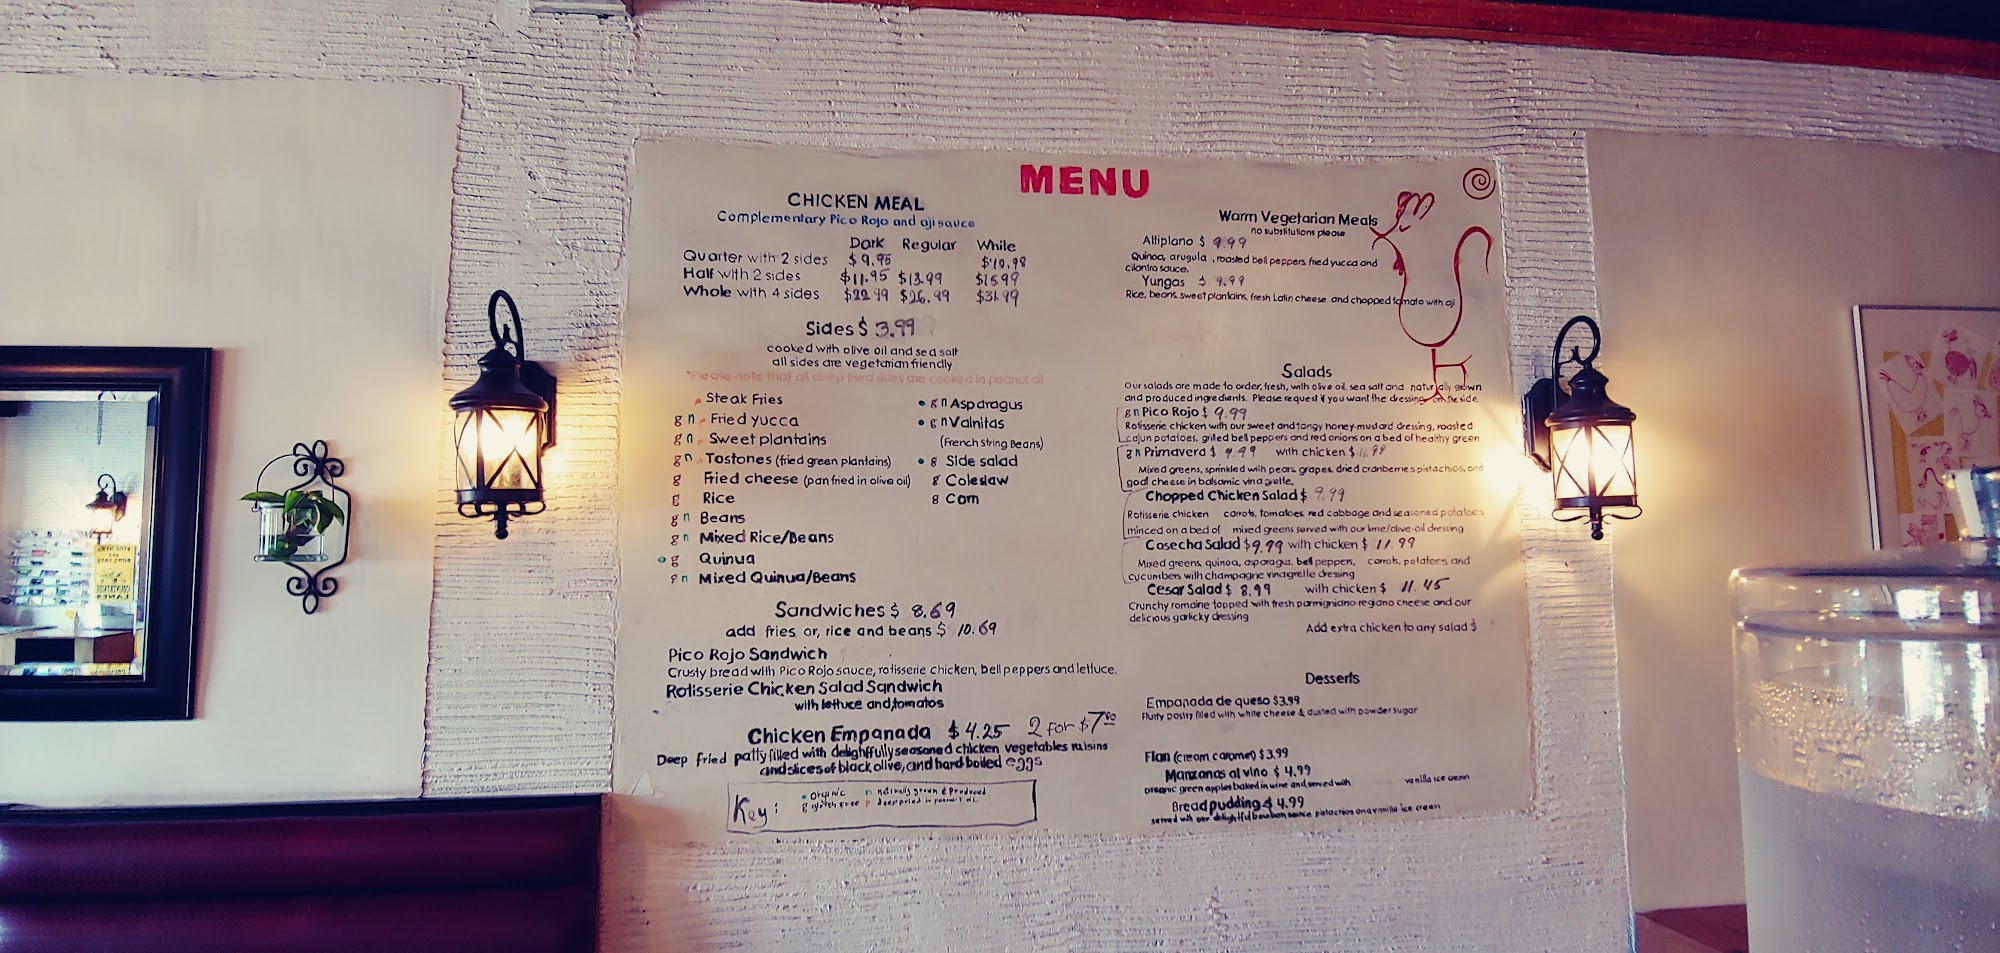 MENU
CHICKEN MEAL
Complementary Pico Rojo and aji sauce
Dark Regular While
Quarter with 2 sides $9.95 $10.98
Half with 2 sides $11.95 $13.99 $15.99
Whole with 4 sides $22.99 $26.99 $31.99
Sides $ 3.99
cooked with olive oil and sea salt
all sides are vegetarian friendly
*Please note that all deep fried sides are cooked in peanut oil
Steak Fries
g n Fried yucca
g n Sweet plantains
g n Tostones (fried green plantains)
g Fried cheese (pan fried in olive oil)
g Rice
g n Beans
g n Mixed Rice/Beans
g Quinua
g n Mixed Quinua/Beans
g n Asparagus
g n Vainitas
(French String Beans)
g Side salad
g Coleslaw
g Corn
Sandwiches $ 8.69
add fries or, rice and beans $ 10.69
Pico Rojo Sandwich
Crusty bread with Pico Rojo sauce, rotisserie chicken, bell peppers and lettuce.
Rotisserie Chicken Salad Sandwich
with lettuce and tomatos
Chicken Empanada $4.25 2 for $7
Deep fried patty filled with delighffully seasoned chicken vegetables raisins
and slices of black olive, and hard boiled eggs
Key: organic n naturally grown & Produced
g gluten free p deep fried in peanut oil
Warm Vegetarian Meals
no substitutions please
Altiplano $ 9.99
Quinoa, arugula, roasted bell peppers, fried yucca and
cilantro sauce.
Yungas $ 9.99
Rice, beans, sweet plantains, fresh Latin cheese, and chopped tomato with aji
Salads
Our salads are made to order, fresh, with olive oil, sea salt and naturally grown
and produced ingredients. Please request if you want the dressing on the side
g n Pico Rojo $ 9.99
Rotisserie chicken with our sweet and tangy honey-mustard dressing, roasted
cajun potatoes, grilled bell peppers and red onions on a bed of healthy green
g n Primavera $ 9.99 with chicken $ 11.99
Mixed greens, sprinkled with pears, grapes, dried cranberries pistachios, and
goat cheese in balsamic vinagrette.
Chopped Chicken Salad $ 9.99
Rotisserie chicken carrots, tomatoes, red cabbage and seasoned potatoes
minced on a bed of mixed greens served with our lime/olive-oil dressing
Cosecha Salad $9.99 with chicken $ 11.99
Mixed greens, quinoa, asparagus, bell peppers, carrots, potatoes, and
cucumbers with champagne vinagrette dressing
Cesar Salad $ 8.99 with chicken $ 11.45
Crunchy romaine topped with fresh parmigniano regiano cheese and our
delicious garlicky dressing
Add extra chicken to any salad $
Desserts
Empanada de queso $3.99
Fluffy pastry filled with white cheese & dusted with powder sugar
Flan (cream caramel) $3.99
Manzanas al vino $ 4.99
organic green apples baked in wine and served with vanilla ice cream
Bread pudding $ 4.99
served with our delightful bourbon sauce pistachios and vanilla ice cream